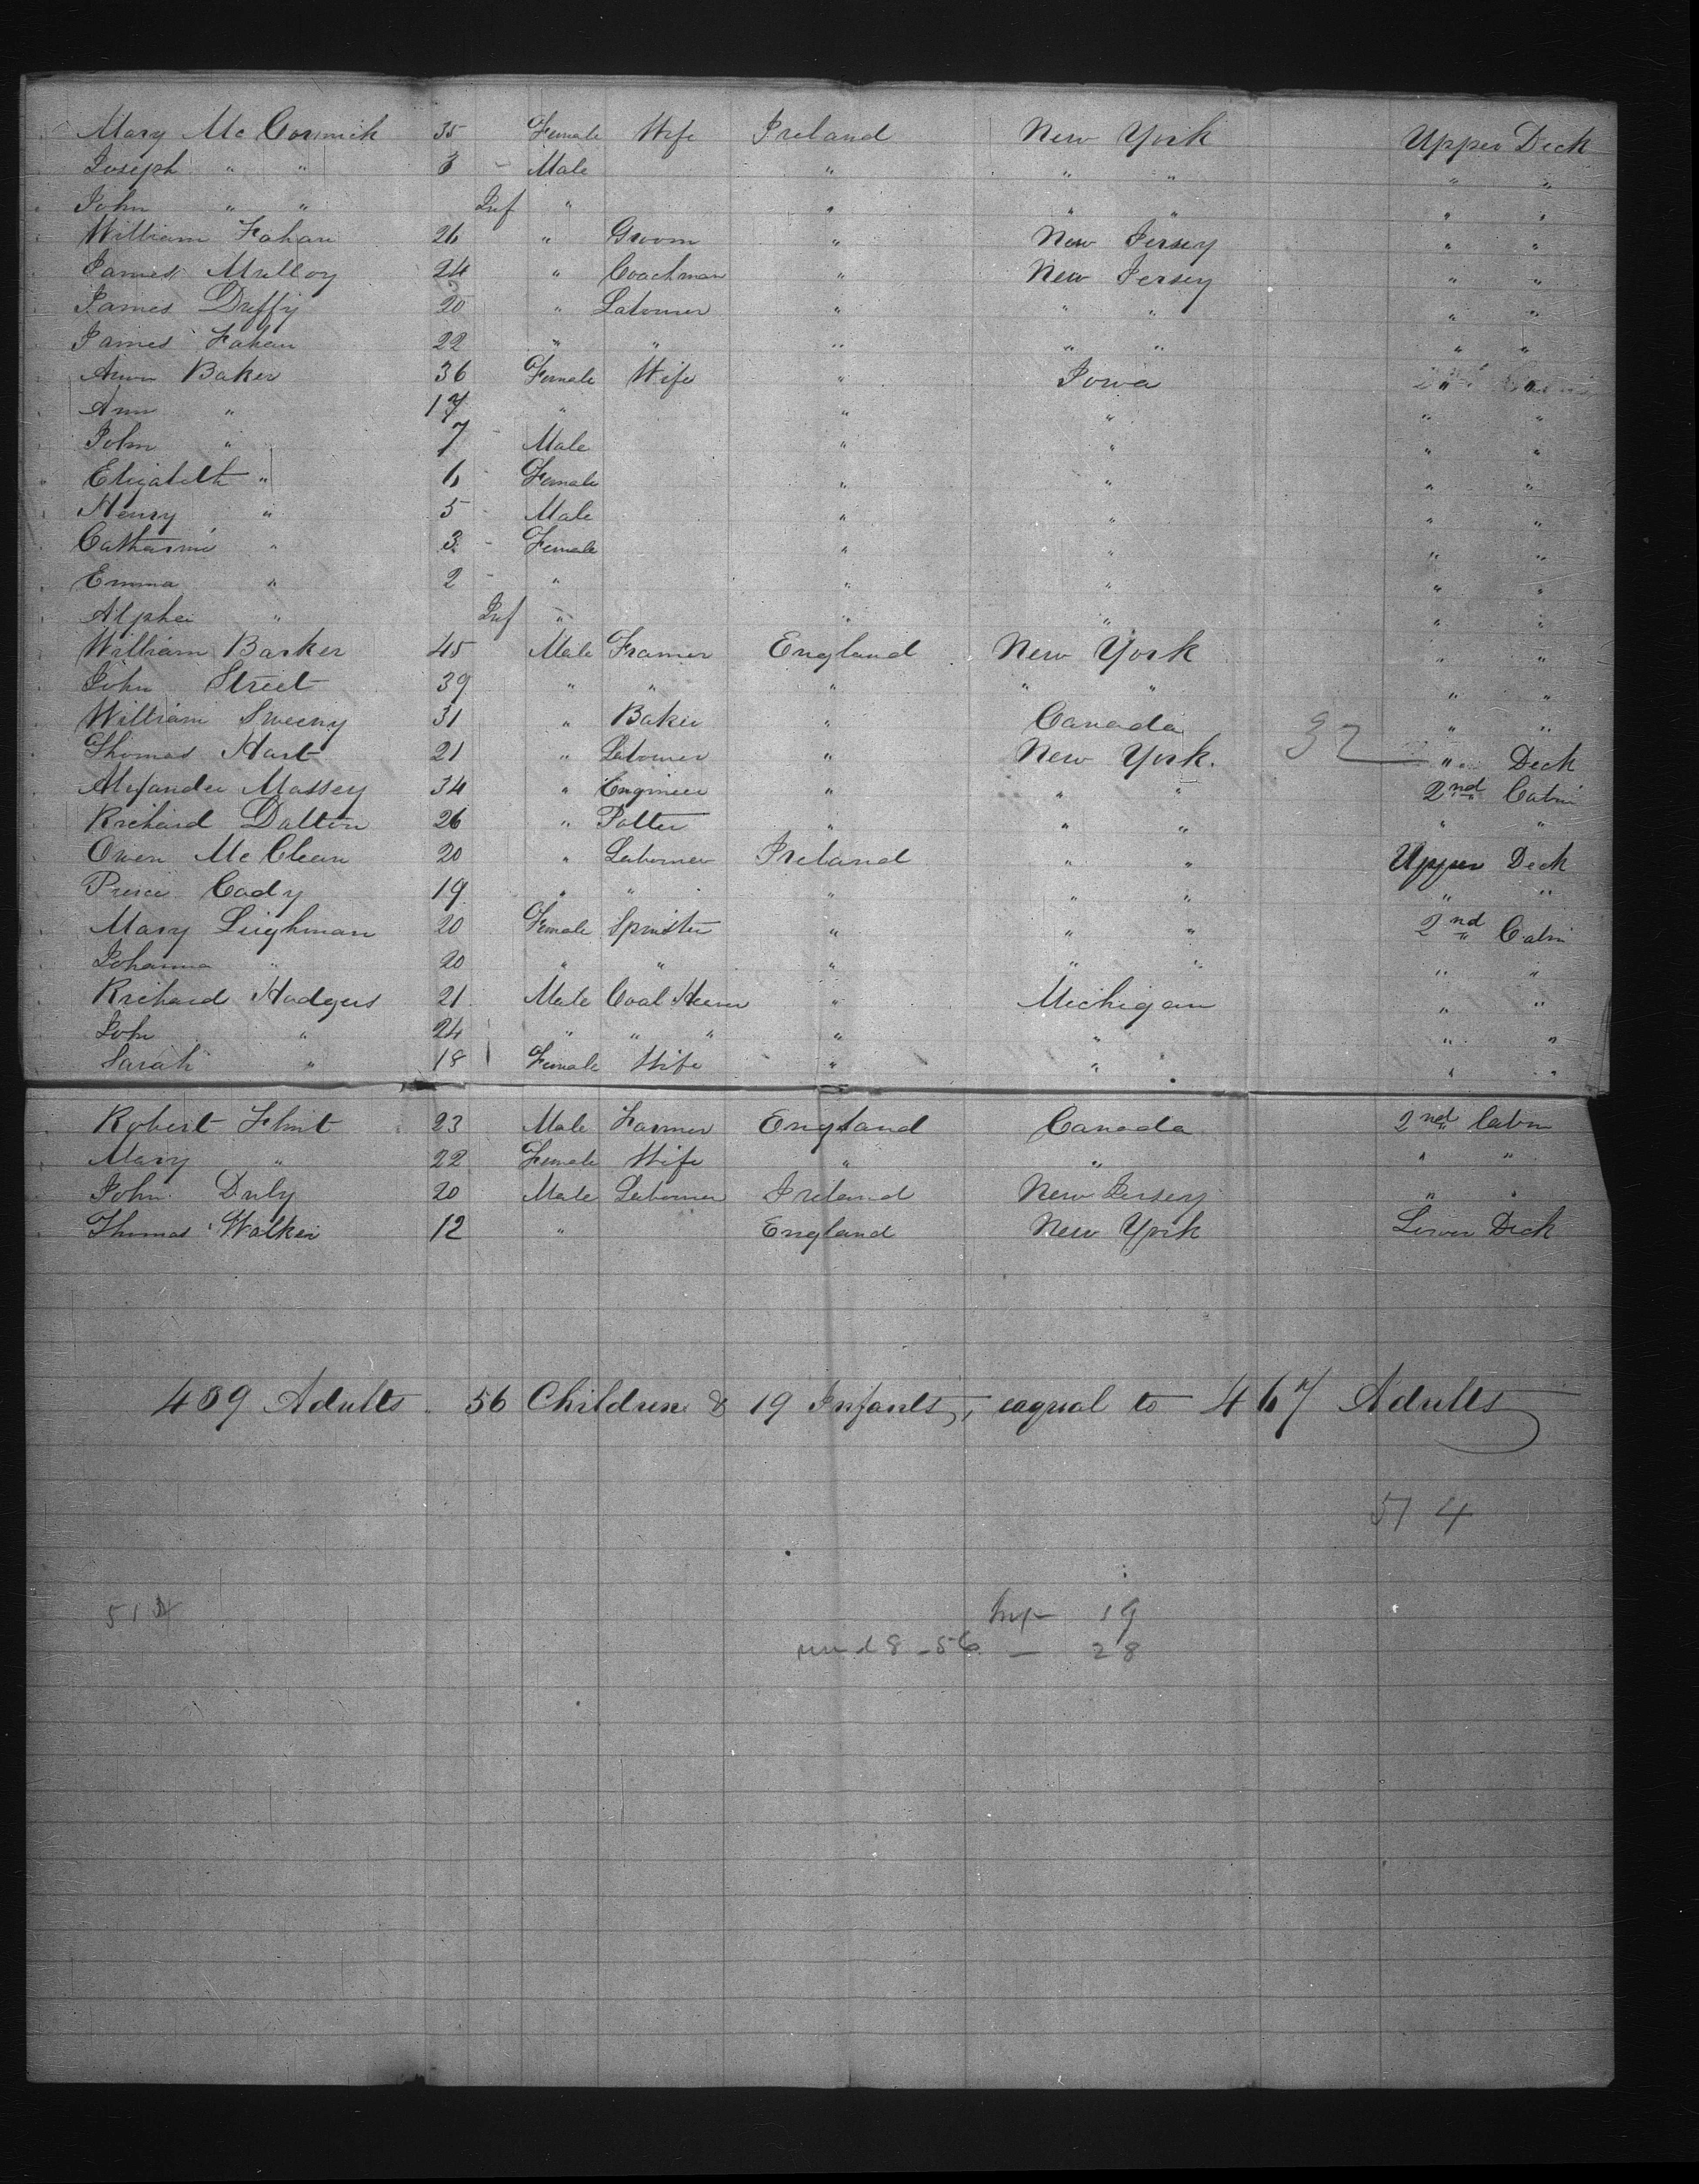 Mary McCormick 35 Female Wife Ireland New York Upper Deck
Joseph " " 3 - Male " " " " "
John " " Inf " " " " " "
William Fahan 26 " Groom " New Jersey " "
James Mulloy 24 " Coachman " New Jersey " "
James Duffy 20 " Labourer " " " " "
James Fahan 22 " " " " " " "
Ann Baker 36 Female Wife " Iowa " "
Ann " 17 " " " " "
John " 7 - Male " " " "
Elizabeth " 6 - Female " " " "
Henry " 5 - Male " " " "
Catharine " 3 - Female " " " "
Emma " 2 - " " " " "
" Inf " " " " "
William Barker 45 Male Framer England New York " "
John Street 39 " " " " " " "
William Sweeny 31 " Baker " Canada " "
Thomas Hart 21 " Labourer " New York. 32 " Deck
Alexander Massey 34 " Engineer " " " 2nd Cabin
Richard Dalton 26 " Potter " " " " "
Owen McClean 20 " Labourer Ireland " " Upper Deck
Cody 19 " " " " " " "
Mary Leighman 20 Female Spinster " " " 2nd Cabin
Johanna " 20 " " " " " " "
Richard Hodgers 21 Male Coal " Michigan " "
John " 24 " " " " " " "
Sarah " 18 Female Wife " " " "
Robert Flint 23 Male Farmer England Canada 2nd Cabin
Mary " 22 Female Wife " " " "
John Duly 20 Male Labourer Ireland New Jersey " "
Thomas Walker 12 " England New York Lower Deck
409 Adults. 56 Children & 19 Infants, eaqual to 467 Adults
514
51
Inf - 19
und 8 - 56 - 28